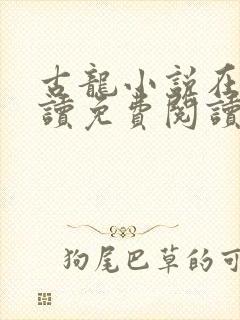 古龍小說在
讀免費閱讀
狗尾巴草的可